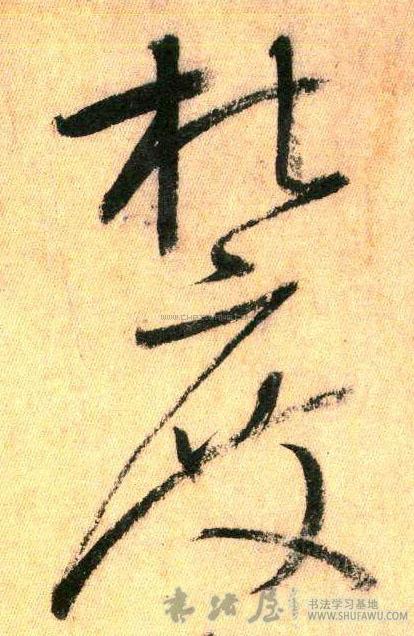 杜度
书法屋
书法学习基地
WWW.SHUFAWU.COM